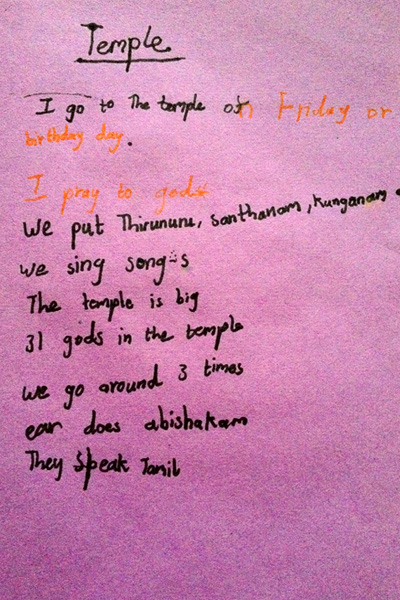 Temple
I go to The temple on Friday or
birthday day.
I pray to gods
We put Thirununu, santhanam, Kunganam
We sing songs
The temple is big
31 gods in the temple
we go around 3 times
ear does abishakam
They Speak Tamil